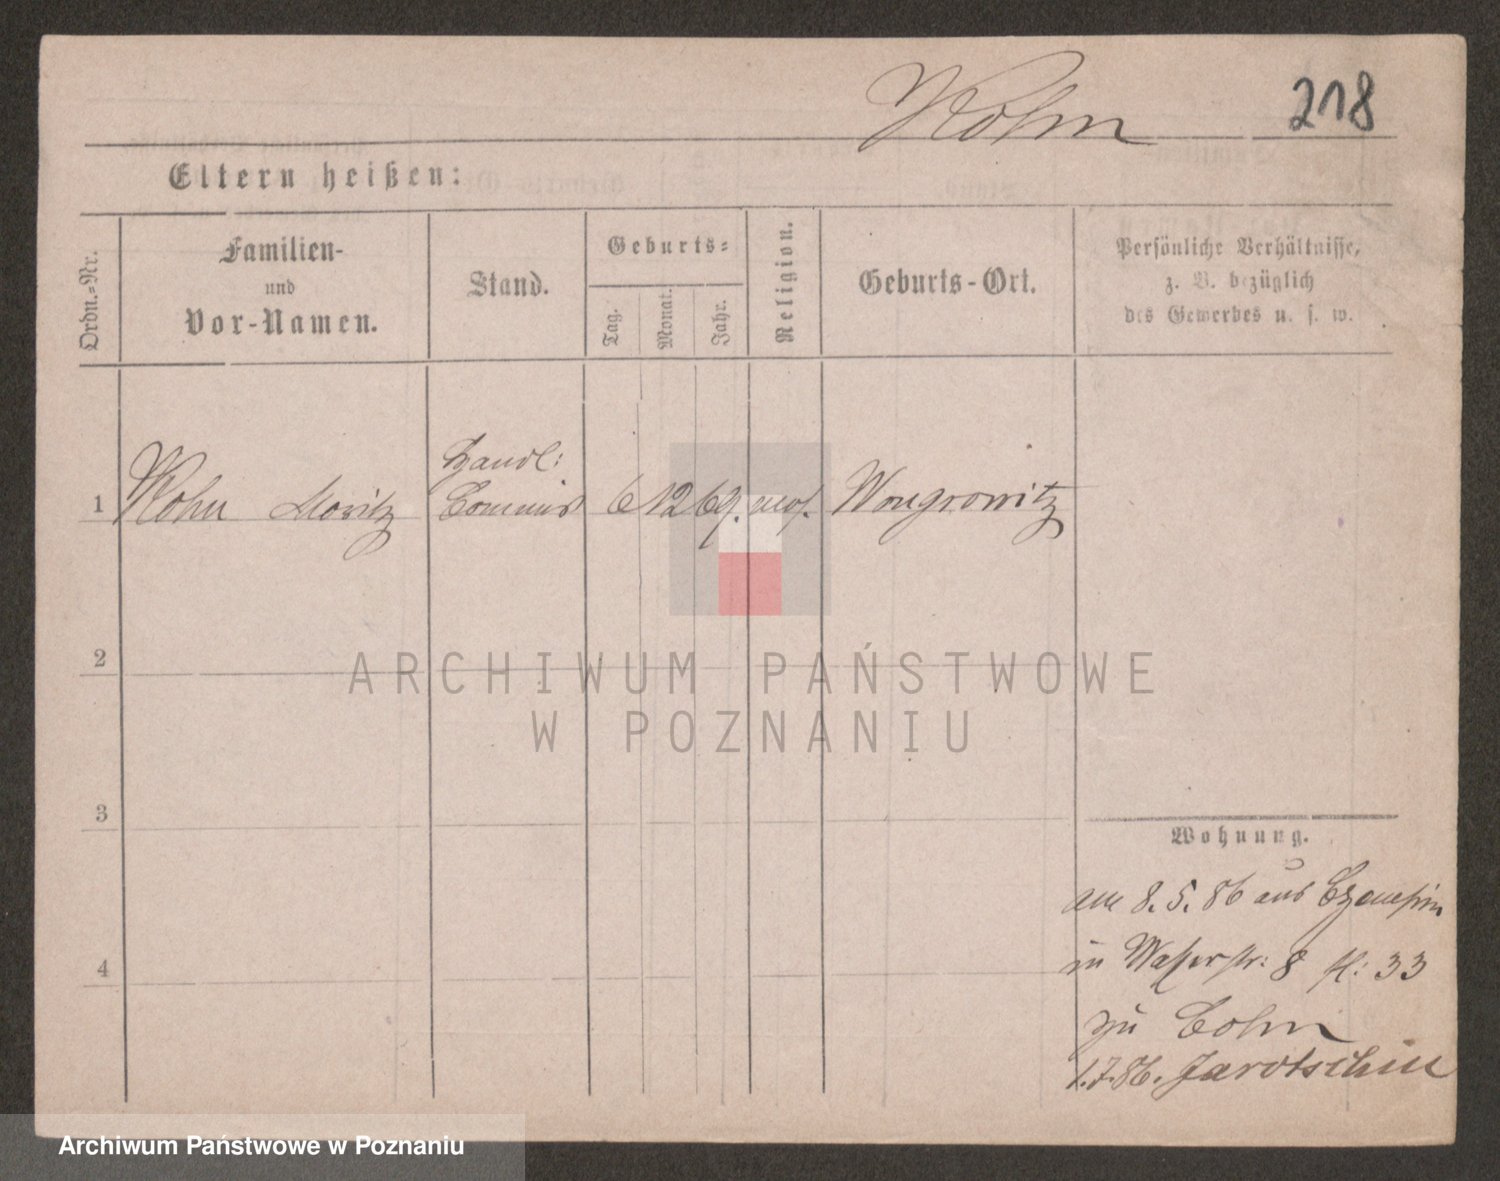 Kohn 218
Eltern heißen:
Ordn.-Nr.
Familien-
und
Vor-Namen.
Stand.
Geburts-
Tag.
Monat.
Jahr.
Religion.
Geburts-Ort.
Persönliche Verhältnisse,
z. B. bezüglich
des Gewerbes u. s. w.
1 Kohn Moritz Handl: Commis 6 12 69. mos. Wongrowitz
2
3
4
Wohnung.
am 8. 5. 86 aus Czempin
in Wasserstr: 8 st: 33
zu Cohn
1.7.86. Jarotschin
ARCHIWUM PAŃSTWOWE
W POZNANIU
Archiwum Państwowe w Poznaniu